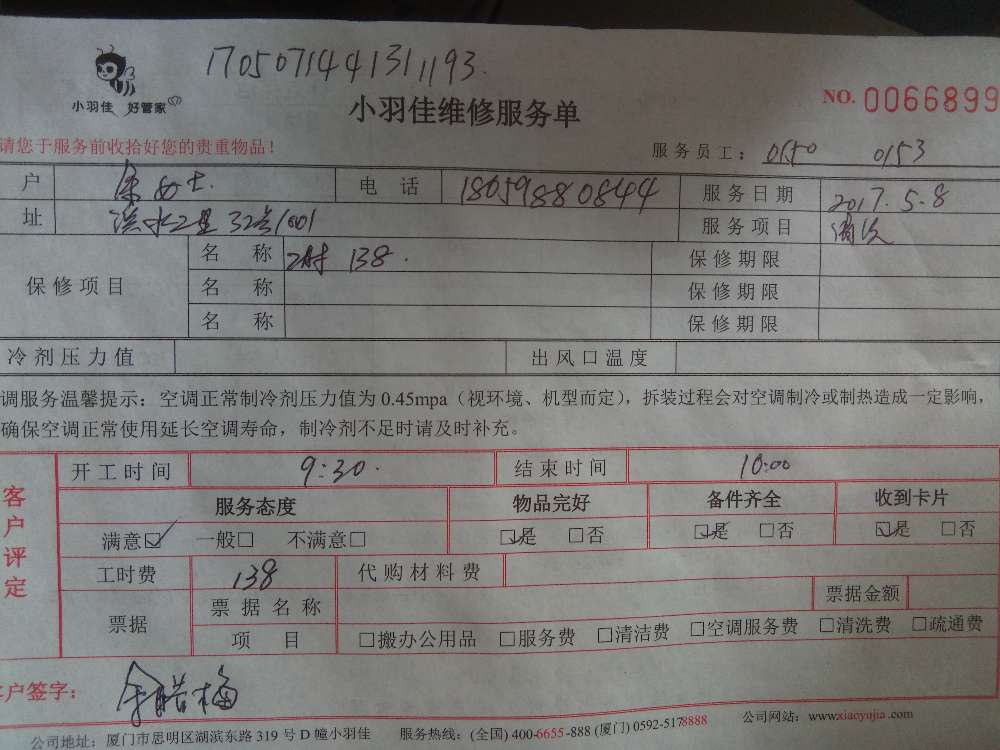 17050714413111193
小羽佳 好管家
小羽佳维修服务单
NO. 0066899
请您于服务前收拾好您的贵重物品！
服务员工： 0150 0153
户 余女士. 电 话 18059880844 服务日期 2017.5.8
址 洪水二里32号1001 服务项目
保修项目 名 称 138. 保修期限
名 称 保修期限
名 称 保修期限
冷剂压力值 出风口温度
调服务温馨提示：空调正常制冷剂压力值为0.45mpa（视环境、机型而定），拆装过程会对空调制冷或制热造成一定影响，
确保空调正常使用延长空调寿命，制冷剂不足时请及时补充。
客户评定
开工时间 9:30. 结束时间 10:00
服务态度 物品完好 备件齐全 收到卡片
满意☑ 一般□ 不满意□ ☑是 □否 ☑是 □否 ☑是 □否
工时费 138 代购材料费
票据 票据名称 票据金额
项 目 □搬办公用品 □服务费 □清洁费 □空调服务费 □清洗费 □疏通费
户签字：
公司地址：厦门市思明区湖滨东路319号D幢小羽佳 服务热线：(全国) 400-6655-888 (厦门) 0592-5178888 公司网站：www.xiaoyujia.com